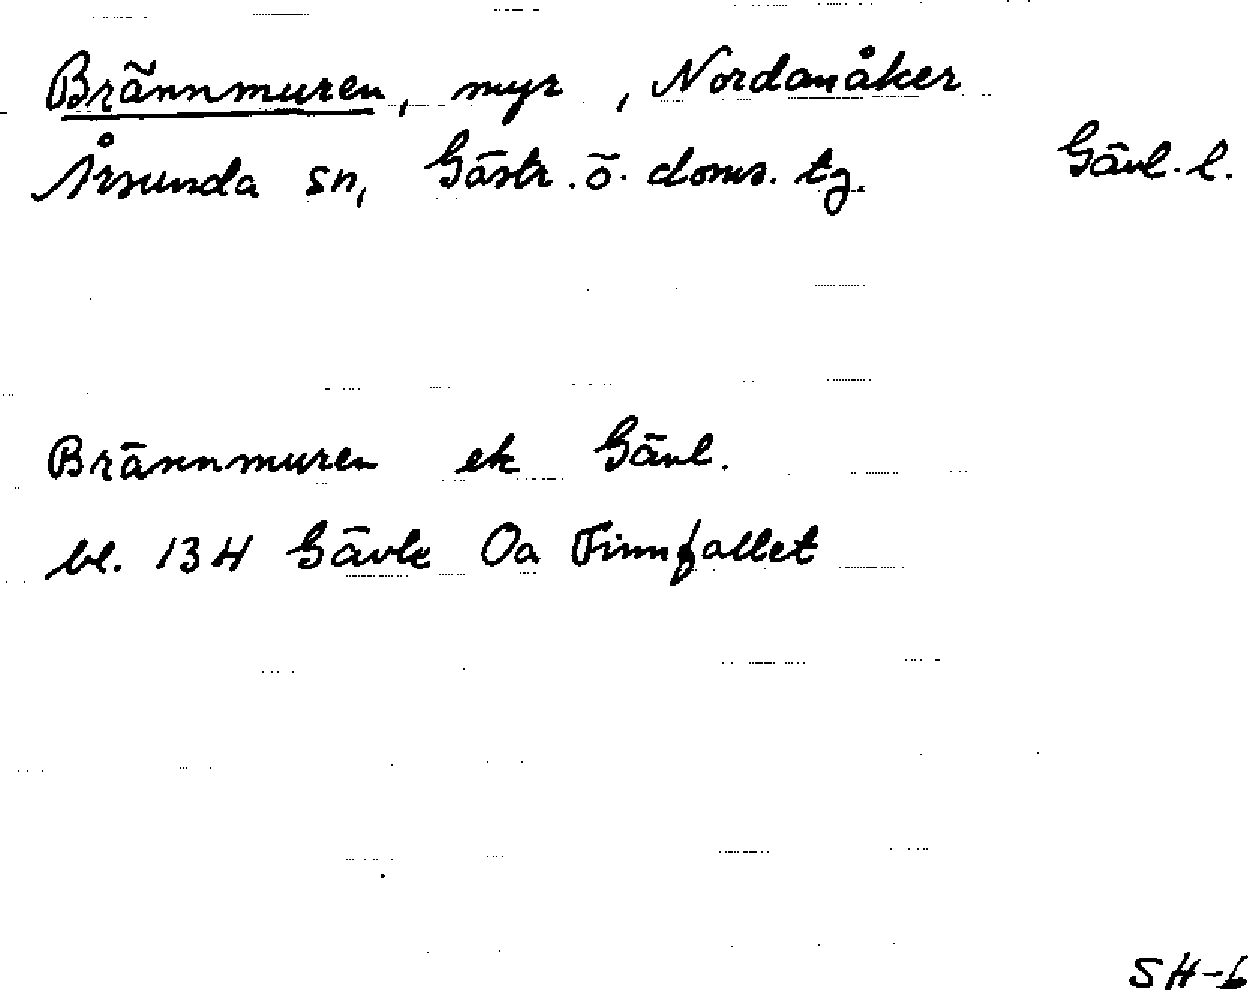 Brännmuren, myr, Nordanåker
Årsunda sn, Gästr. ö. doms. tg. Gävl. l.
Brännmuren ek Gävl.
bl. 134 Gävle Oa Finnfallet
SH-6